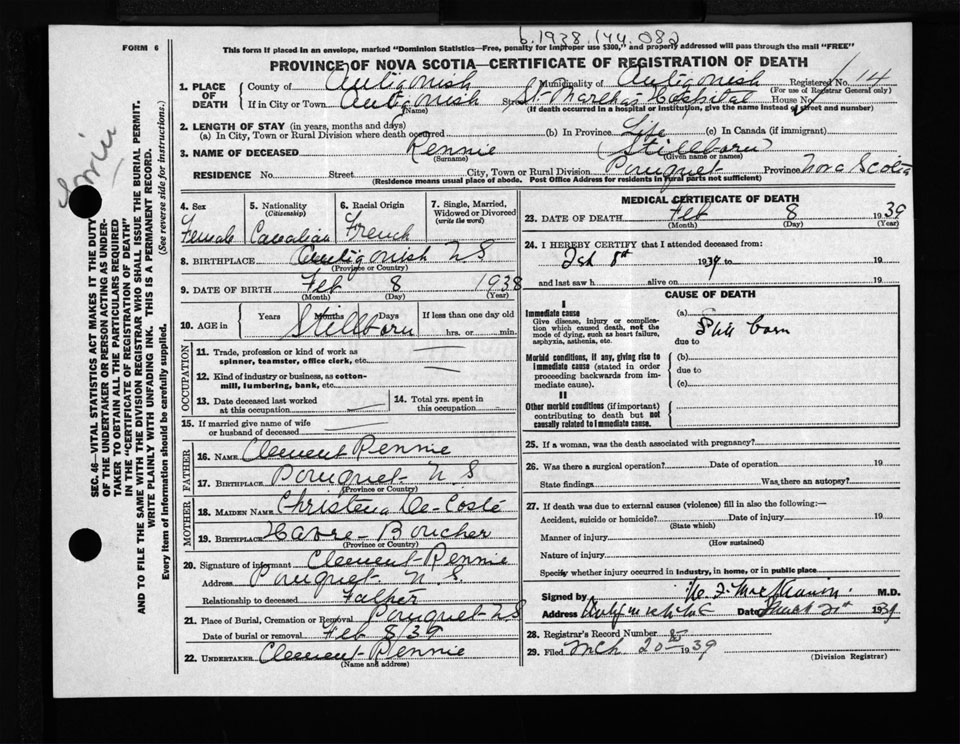 b.1938.144.082
FORM 6
This form if placed in an envelope, marked "Dominion Statistics—Free, penalty for improper use $300," and properly addressed will pass through the mail "FREE"
PROVINCE OF NOVA SCOTIA—CERTIFICATE OF REGISTRATION OF DEATH
1. PLACE OF DEATH
County of Antigonish Municipality of Antigonish Registered No. 14
(For use of Registrar General only)
If in City or Town Antigonish Street St. Marthas Hospital House No.
(Name) (If death occurred in a hospital or institution, give the name instead of street and number)
2. LENGTH OF STAY (in years, months and days)
(a) In City, Town or Rural Division where death occurred (b) In Province Life (c) In Canada (if immigrant)
3. NAME OF DECEASED Rennie (Stillborn)
(Surname) (Given name or names)
RESIDENCE No. Street City, Town or Rural Division Pomquet Province Nova Scotia
(Residence means usual place of abode. Post Office Address for residents in rural parts not sufficient)
4. Sex Female
5. Nationality (Citizenship) Canadian
6. Racial Origin French
7. Single, Married, Widowed or Divorced (write the word)
8. BIRTHPLACE Antigonish N S
(Province or Country)
9. DATE OF BIRTH Feb 8 1938
(Month) (Day) (Year)
10. AGE in Years Months Days If less than one day old
Stillborn hrs. or min.
OCCUPATION
11. Trade, profession or kind of work as spinner, teamster, office clerk, etc.
12. Kind of industry or business, as cotton-mill, lumbering, bank, etc.
13. Date deceased last worked at this occupation
14. Total yrs. spent in this occupation
15. If married give name of wife or husband of deceased
FATHER
16. NAME Clement Rennie
17. BIRTHPLACE Pomquet N S
(Province or Country)
MOTHER
18. MAIDEN NAME Christena De-Coste
19. BIRTHPLACE Havre-Boucher
(Province or Country)
20. Signature of informant Clement Rennie
Address Pomquet N. S.
Relationship to deceased Father
21. Place of Burial, Cremation or Removal Pomquet NS
Date of burial or removal Feb 8/39
22. UNDERTAKER Clement Rennie
(Name and address)
MEDICAL CERTIFICATE OF DEATH
23. DATE OF DEATH Feb 8 1939
(Month) (Day) (Year)
24. I HEREBY CERTIFY that I attended deceased from:
Feb 8th 1939 to 19
and last saw h alive on 19
CAUSE OF DEATH
I
Immediate cause
Give disease, injury or complication which caused death, not the mode of dying, such as heart failure, asphyxia, asthenia, etc.
(a) Still born
due to
Morbid conditions, if any, giving rise to immediate cause (stated in order proceeding backwards from immediate cause).
(b)
due to
(c)
II
Other morbid conditions (if important) contributing to death but not causally related to immediate cause.
25. If a woman, was the death associated with pregnancy?
26. Was there a surgical operation? Date of operation 19
State findings Was there an autopsy?
27. If death was due to external causes (violence) fill in also the following:—
Accident, suicide or homicide? Date of injury 19
(State which)
Manner of injury
(How sustained)
Nature of injury
Specify whether injury occurred in industry, in home, or in public place
Signed by M.D.
Address Date 1939
28. Registrar's Record Number 8
29. Filed Mch 20 1939
(Division Registrar)
SEC. 46—VITAL STATISTICS ACT MAKES IT THE DUTY
OF THE UNDERTAKER OR PERSON ACTING AS UNDER-
TAKER TO OBTAIN ALL THE PARTICULARS REQUIRED
IN THE "CERTIFICATE OF REGISTRATION OF DEATH"
AND TO FILE THE SAME WITH THE DIVISION REGISTRAR WHO SHALL ISSUE THE BURIAL PERMIT.
WRITE PLAINLY WITH UNFADING INK. THIS IS A PERMANENT RECORD.
Every item of information should be carefully supplied. (See reverse side for instructions.)